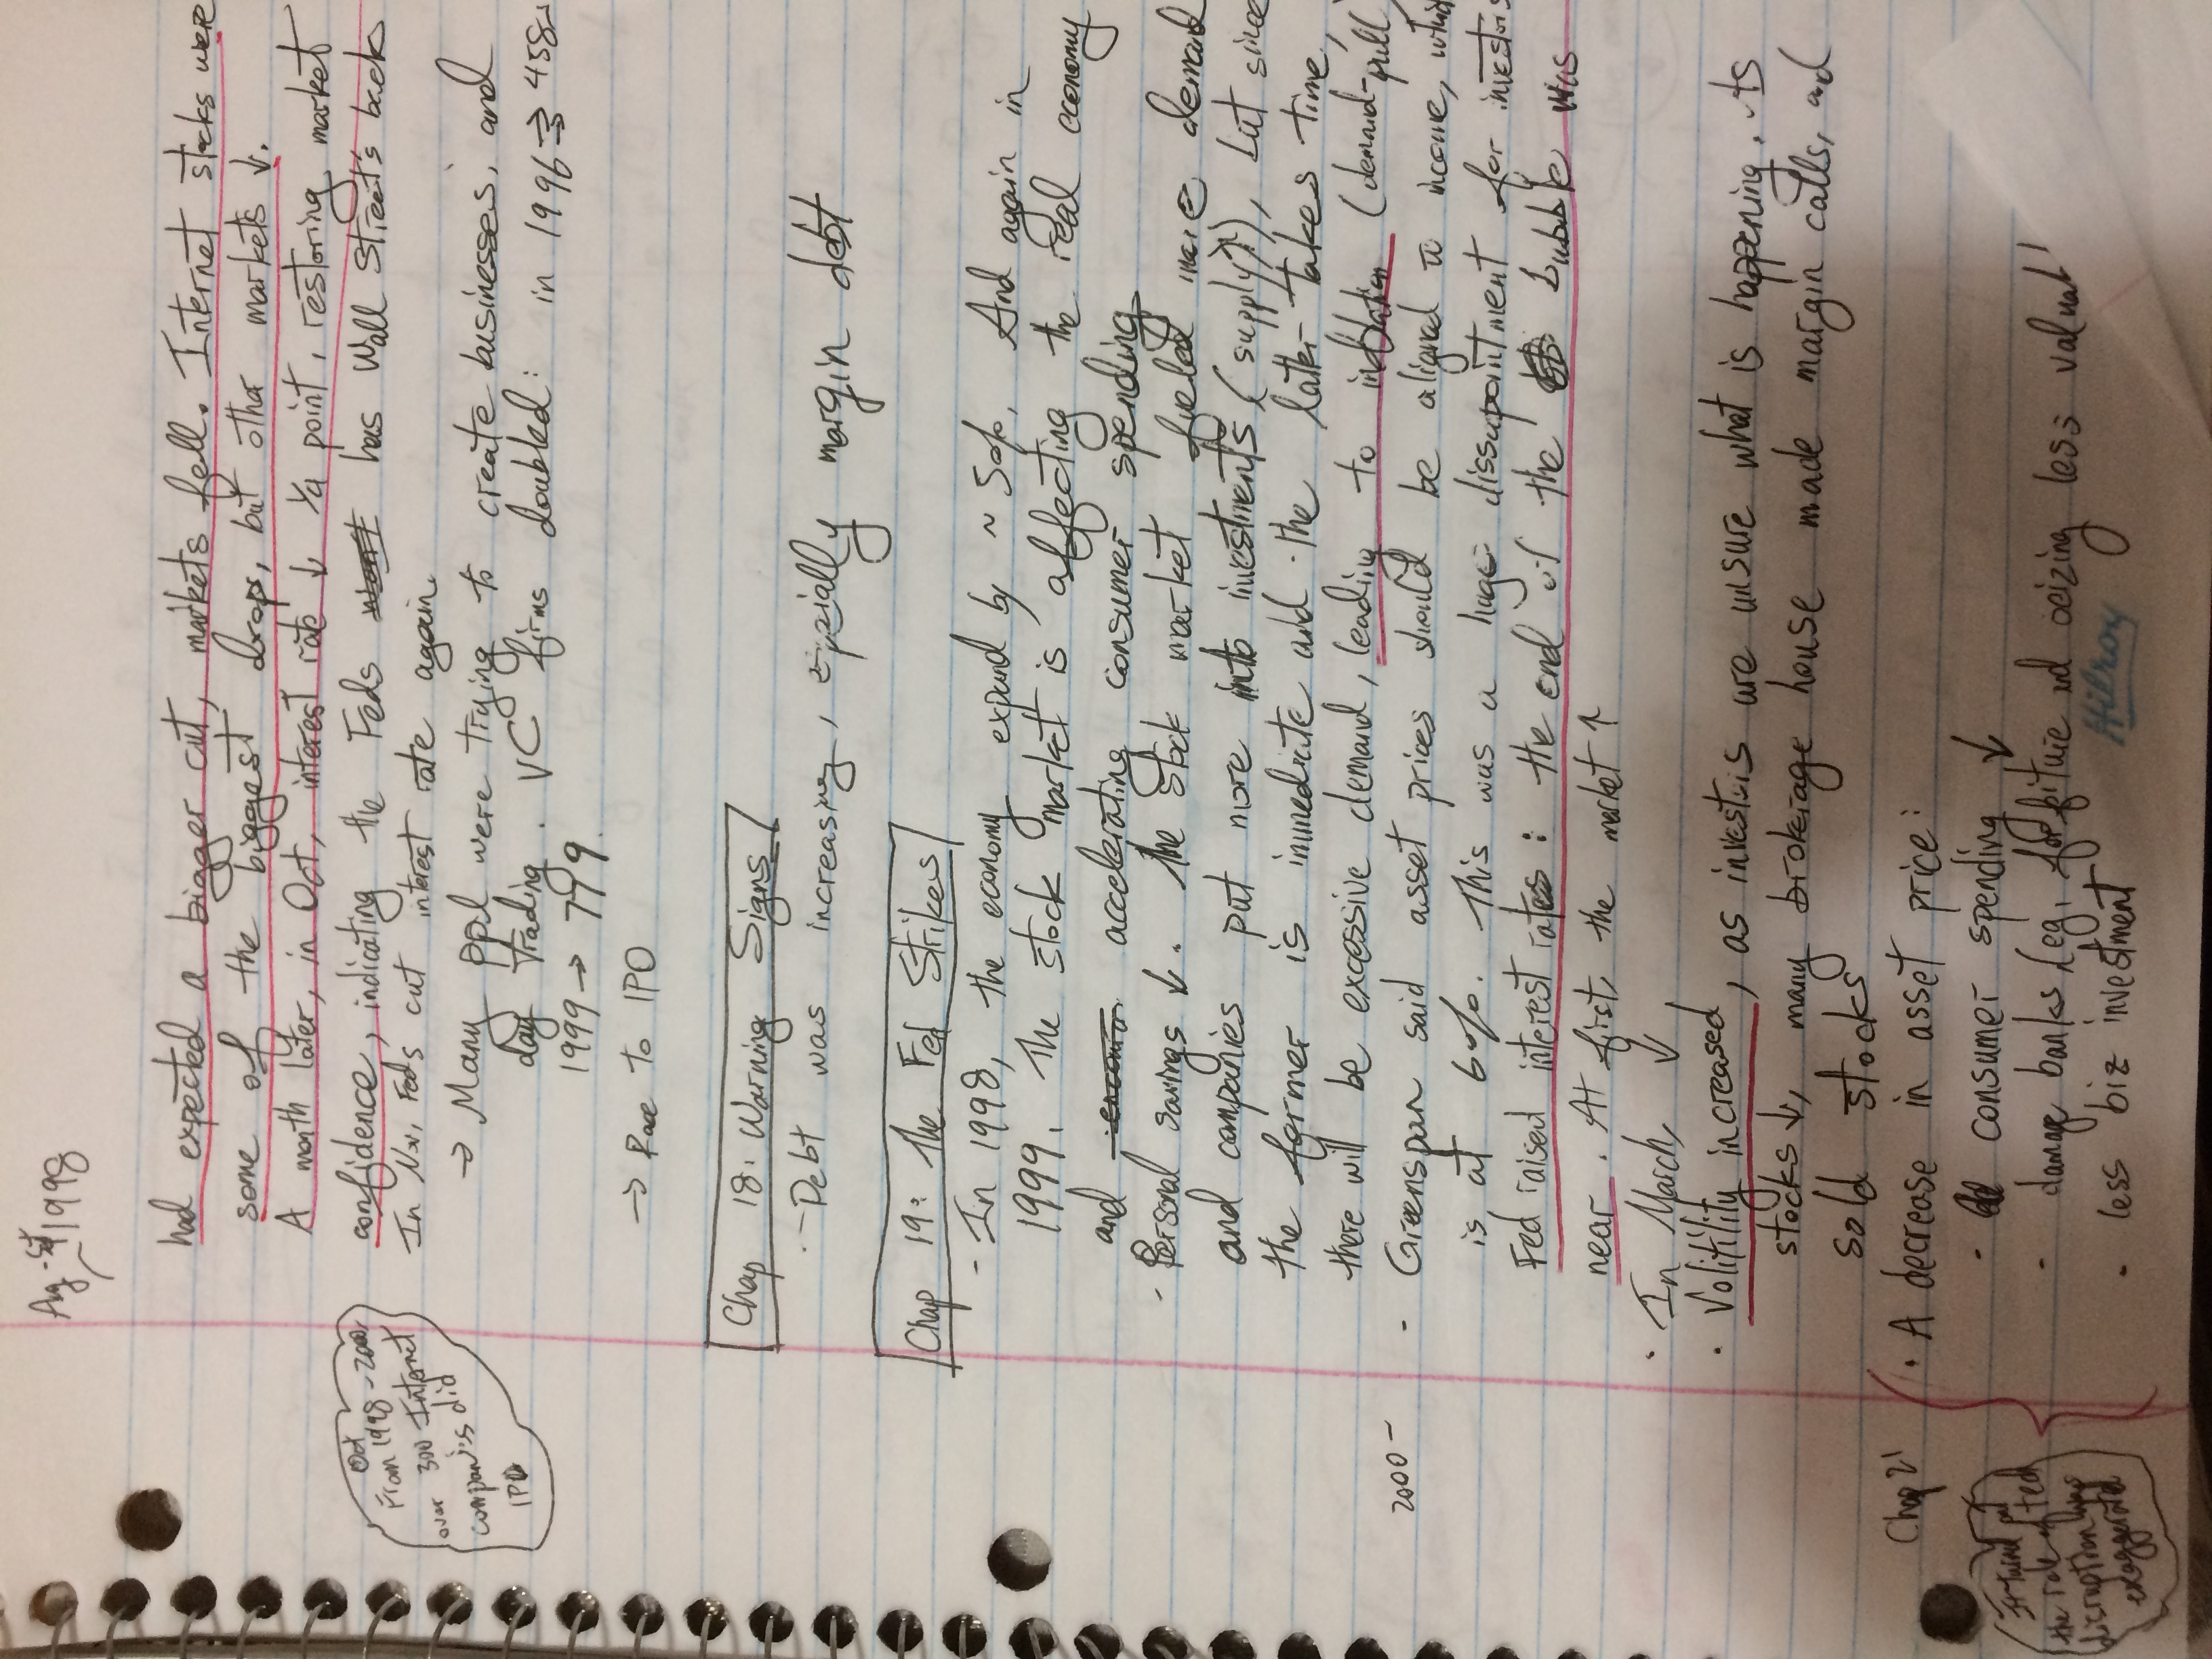 Aug - Sept 1998
had expected a bigger cut, markets fell. Internet stocks were
some of the biggest drops, but other markets ↓.
A month later, in Oct, interest rate ↓ 1/4 point, restoring market
confidence, indicating the Feds has Wall Street's back
In Nov, Feds cut interest rate again.
Oct
From 1998-2000,
over 300 Internet
companies did
IPO
→ Many ppl were trying to create businesses, and
day trading. VC firms doubled: in 1996 → 458
1999 → 779.
→ Race to IPO
Chap 18: Warning Signs
- Debt was increasing, epecially margin debt
Chap 19: The Fed Strikes
- In 1998, the economy expand by ~ 5%. And again in
1999. The stock market is affecting the real economy
and accelerating consumer spending
- Personal savings ↓. The stock market fueled more demand
and companies put more into investments (supply↑), but since
the former is immediate and the latter takes time,
there will be excessive demand, leading to inflation (demand-pull
2000 - - Greenspan said asset prices should be aligned to income,
is at 6%. This was a huge dissapointment for investors
Fed raised interest rates: the end of the bubble was
near. At first, the market ↑
· In March, ↓,
· Volitility increased, as investors are unsure what is happening. As
stocks ↓, many brokerage house made margin calls, and
sold stocks
Chap 21
· A decrease in asset price:
- consumer spending ↓
- damage banks (eg, forfeiture and seizing less
- less biz investment
It turned out
the role of tech
disruption was
exaggerated
Hilroy